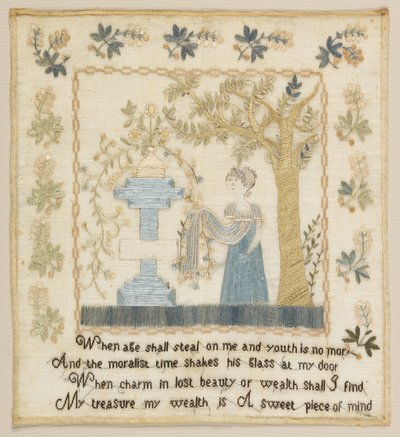 When age shall steal on me and youth is no mor
And the moralist time shakes his glass at my door
When charm in lost beauty or wealth shall I find
My treasure my wealth is A sweet piece of mind